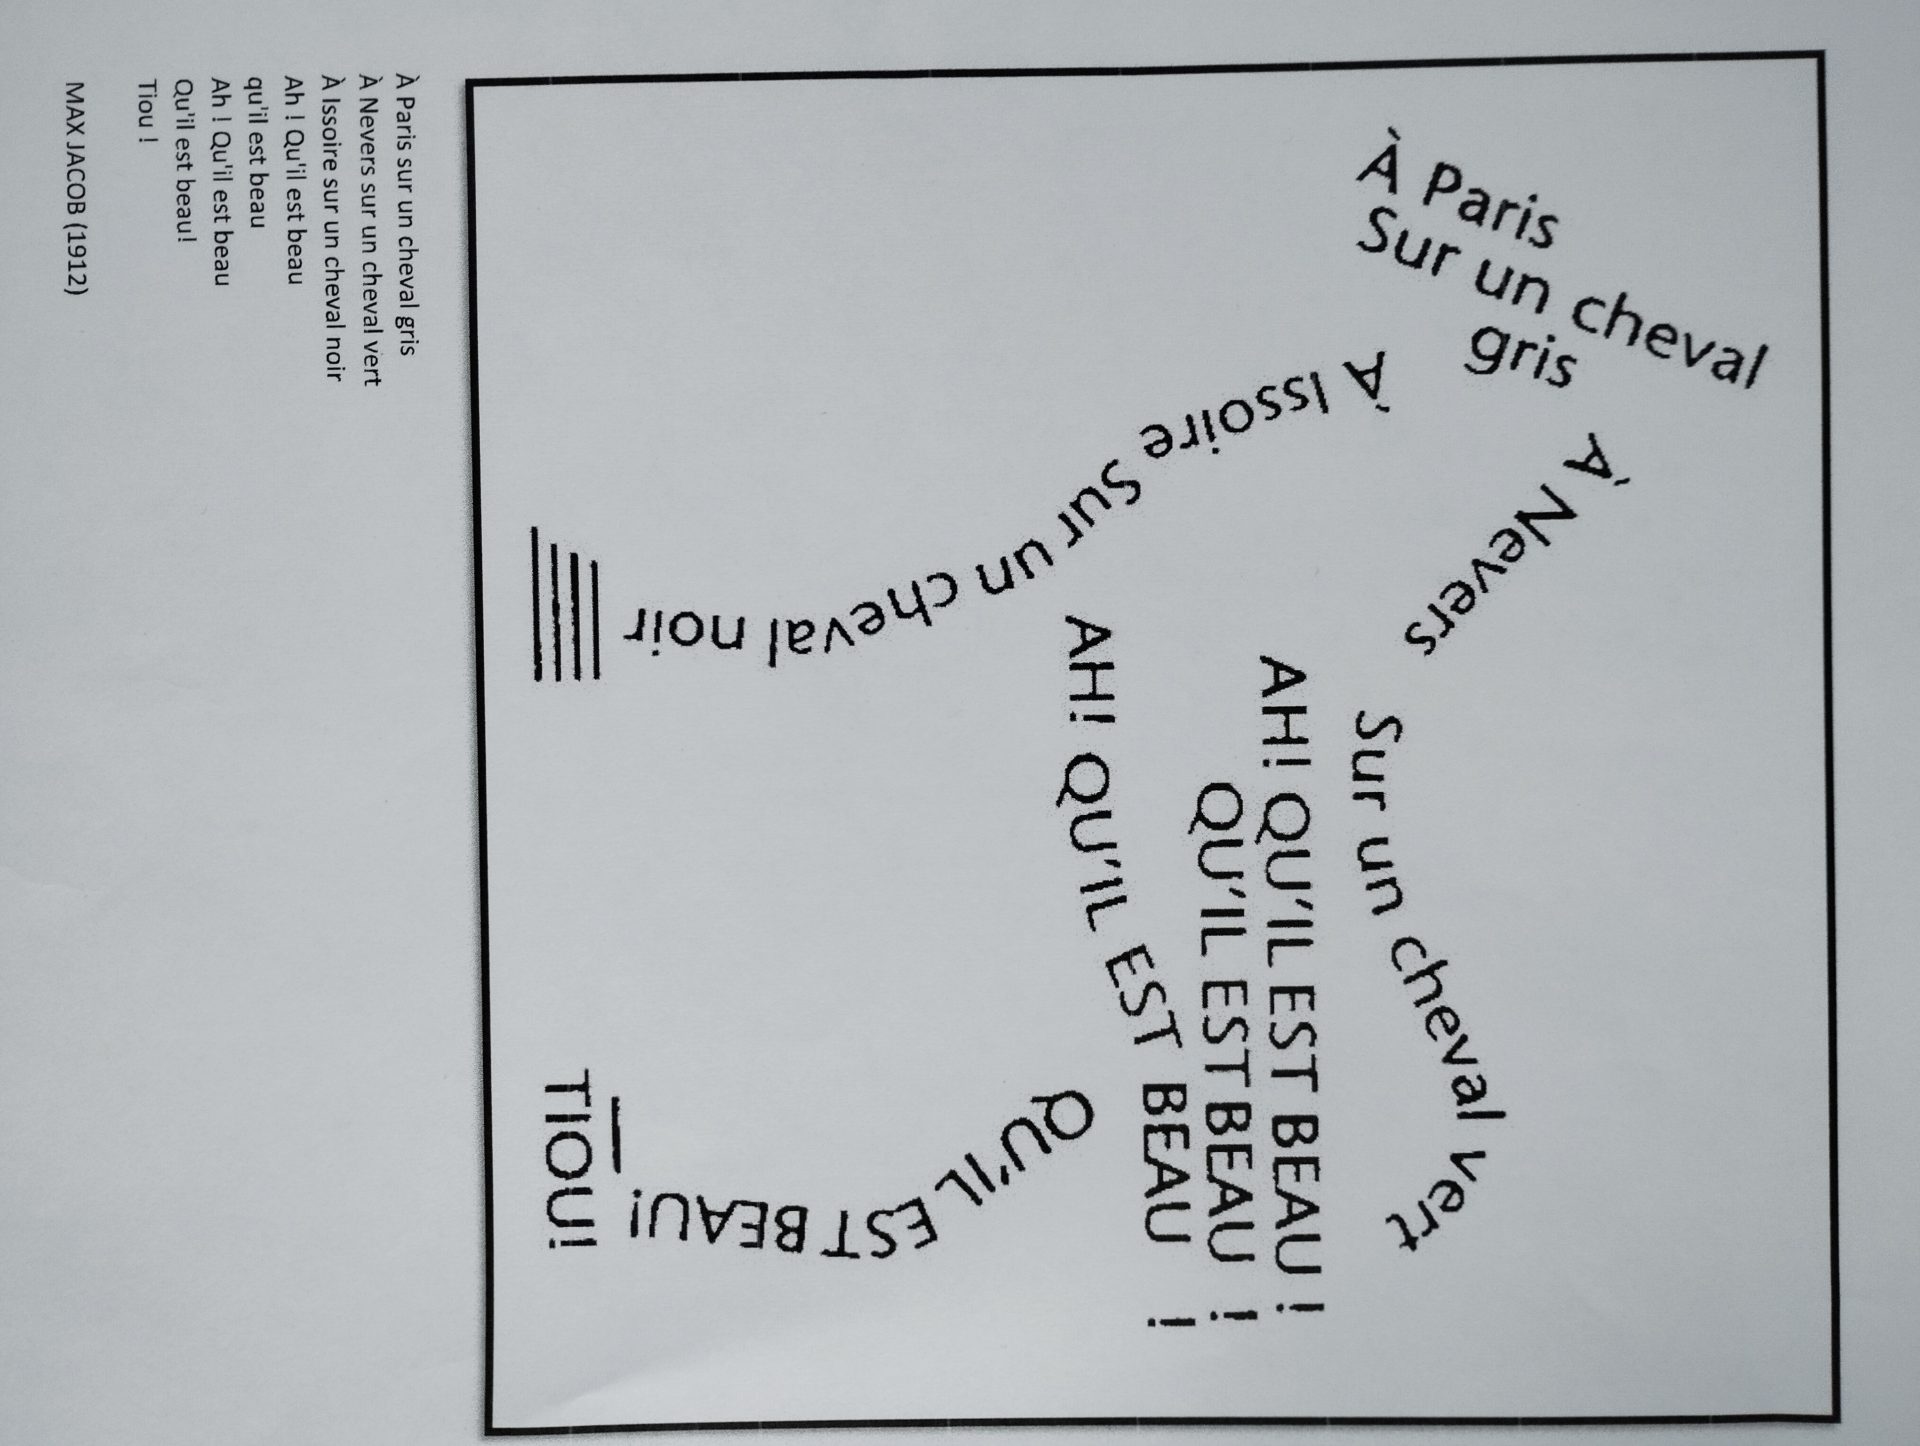 À Paris
Sur un cheval
gris
À Nevers
Sur un cheval vert
À Issoire Sur un cheval noir
AH! QU'IL EST BEAU !
QU'IL EST BEAU !
AH! QU'IL EST BEAU !
QU'IL EST BEAU!
TIOU!
À Paris sur un cheval gris
À Nevers sur un cheval vert
À Issoire sur un cheval noir
Ah ! Qu'il est beau
qu'il est beau
Ah ! Qu'il est beau
Qu'il est beau!
Tiou !
MAX JACOB (1912)